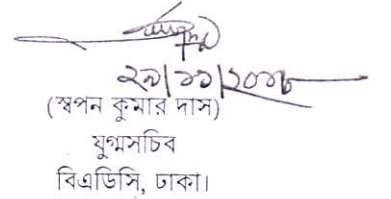 ২৯/১১/২০১৮
(স্বপন কুমার দাস)
যুগ্মসচিব
বিএডিসি, ঢাকা।